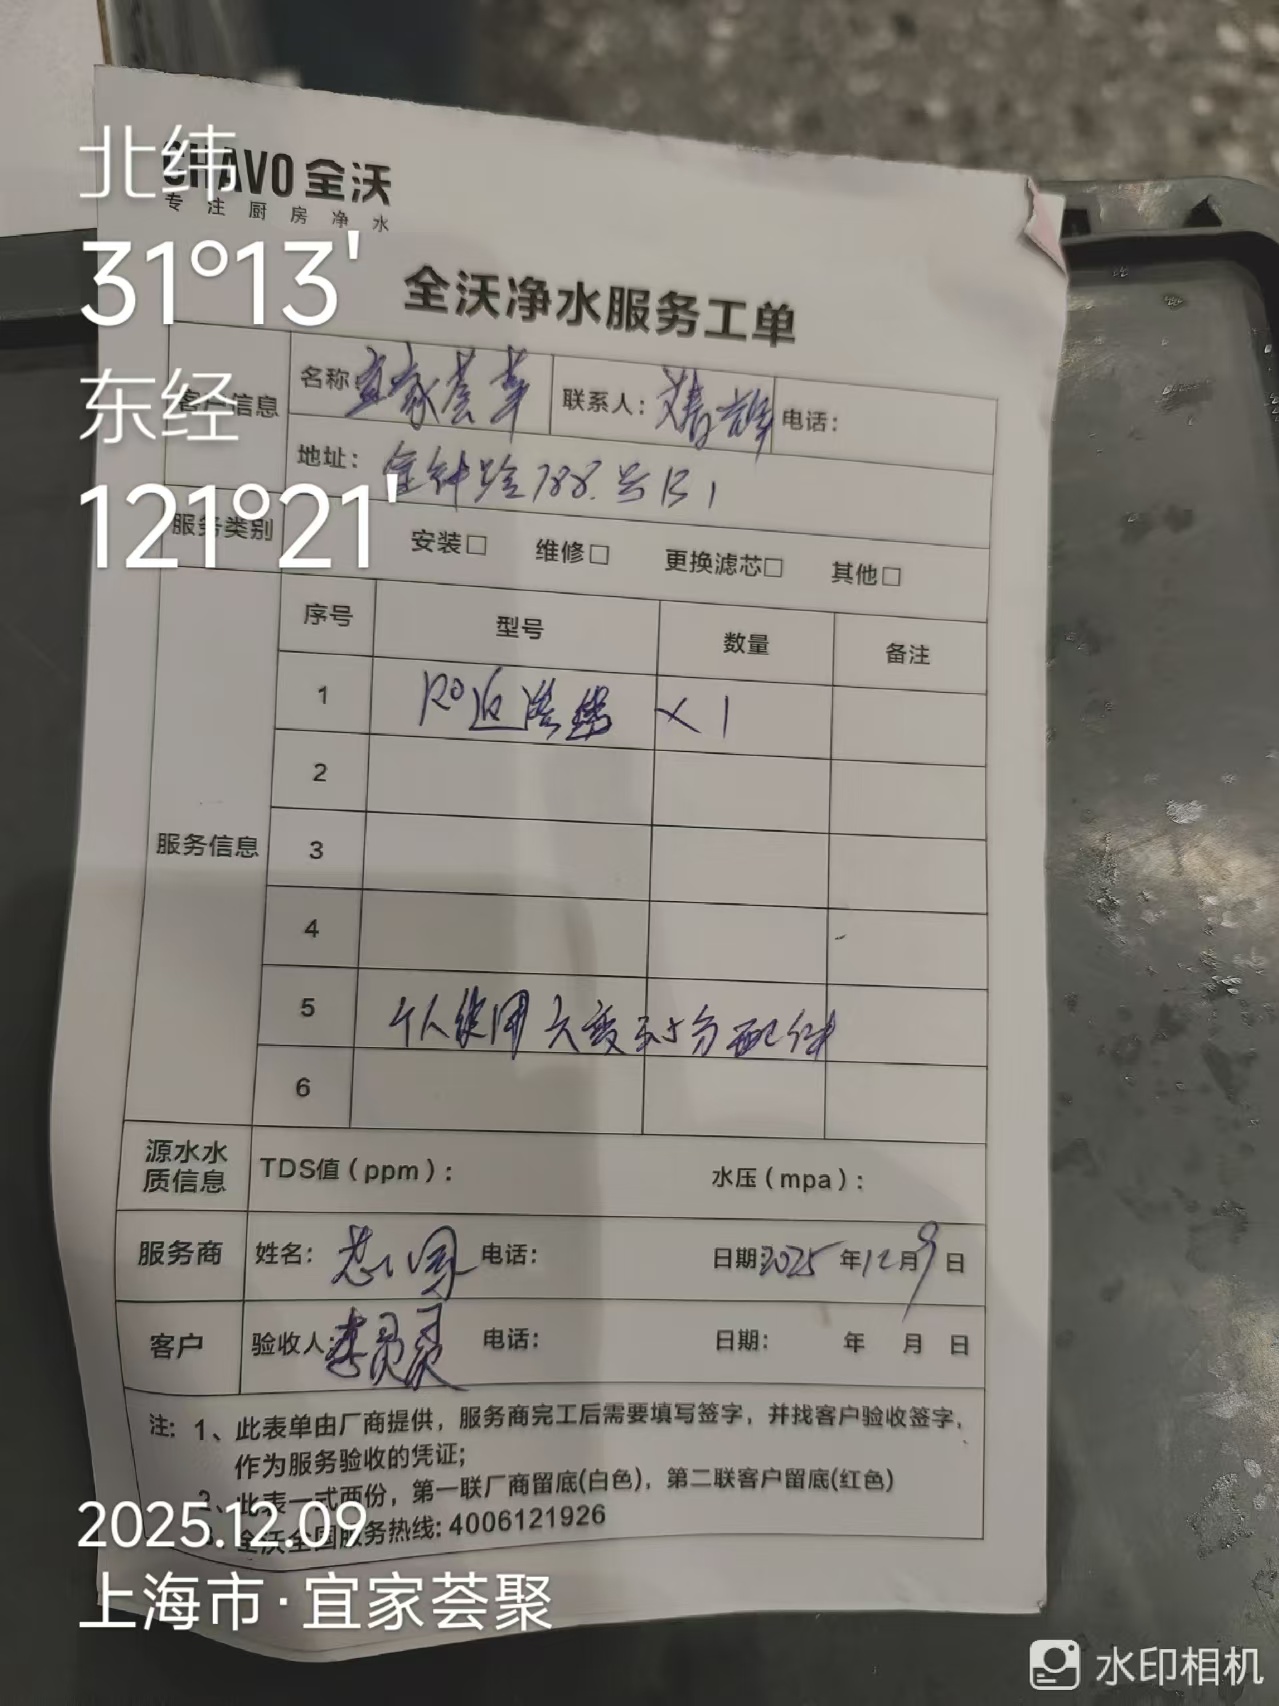 CHAVO 全沃
专注厨房净水
北纬
31°13'
东经
121°21'
全沃净水服务工单
客户信息 名称 宜家荟 联系人: 电话:
地址: 金钟路788号B1
服务类别 安装□ 维修□ 更换滤芯□ 其他□
服务信息 序号 型号 数量 备注
1 RO ×1
2
3
4
5 个人使用 配件
6
源水水质信息 TDS值(ppm): 水压(mpa):
服务商 姓名: 电话: 日期 2025年12月9日
客户 验收人: 李 电话: 日期: 年 月 日
注: 1、此表单由厂商提供，服务商完工后需要填写签字，并找客户验收签字，
作为服务验收的凭证;
2、此表一式两份，第一联厂商留底(白色)，第二联客户留底(红色)
3、全沃全国服务热线: 4006121926
2025.12.09
上海市·宜家荟聚
水印相机